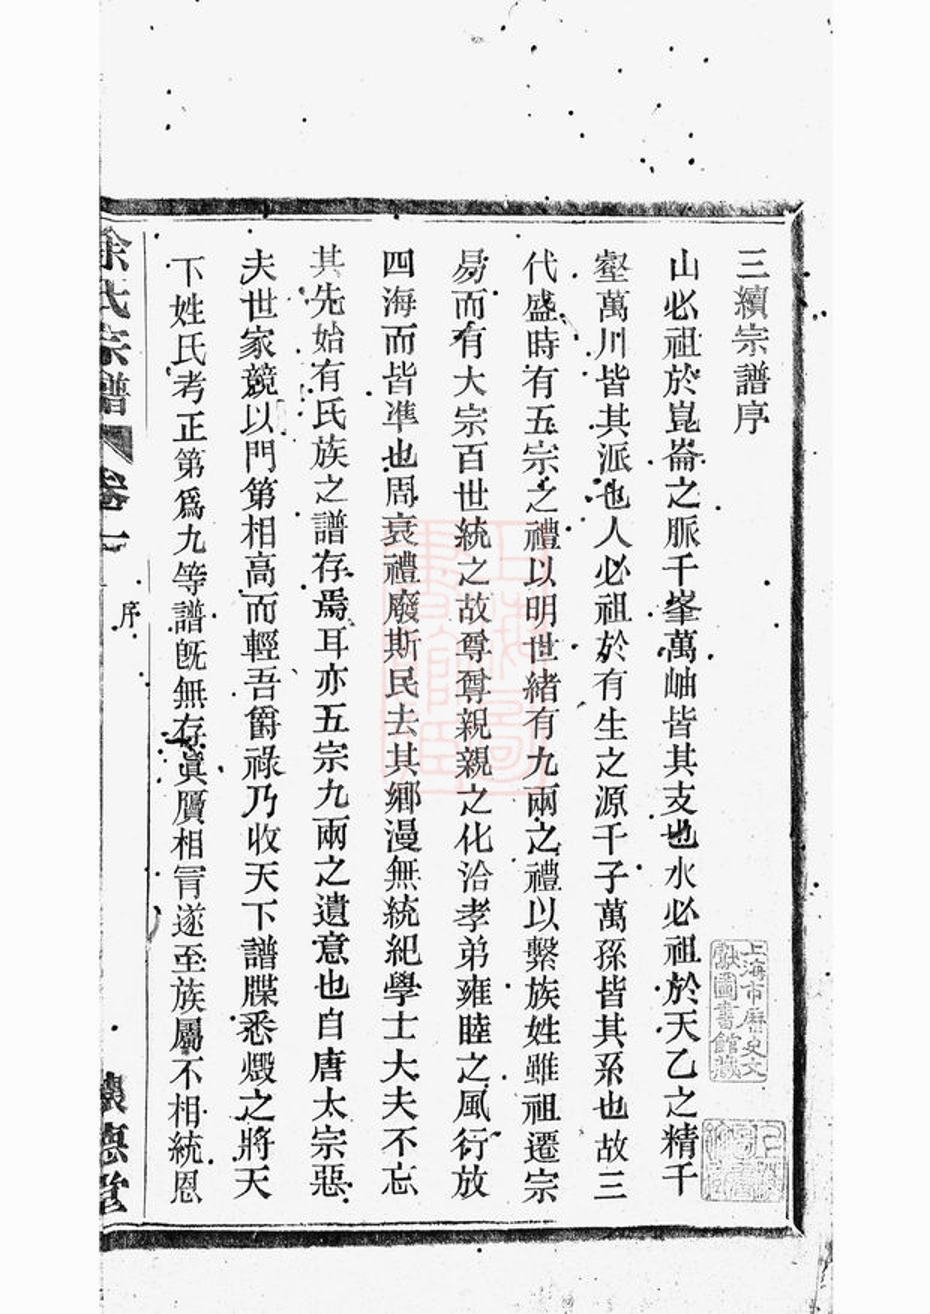 三續宗譜序
山必祖於崑崙之脈千峯萬岫皆其支也水必祖於天乙之精千
壑萬川皆其派也人必祖於有生之源千子萬孫皆其系也故三
代盛時有五宗之禮以明世緒有九兩之禮以繫族姓雖祖遷宗
易而有大宗百世統之故尊尊親親之化洽孝弟雍睦之風行放
四海而皆準也周衰禮廢斯民去其鄉漫無統紀學士大夫不忘
其先始有氏族之譜存焉耳亦五宗九兩之遺意也自唐太宗惡
夫世家競以門第相高而輕吾爵祿乃收天下譜牒悉燬之將天
下姓氏考正第爲九等譜旣無存眞贋相冐遂至族屬不相統恩
氏宗譜
卷一
序
德堂
上海市歷史文
獻圖書館藏